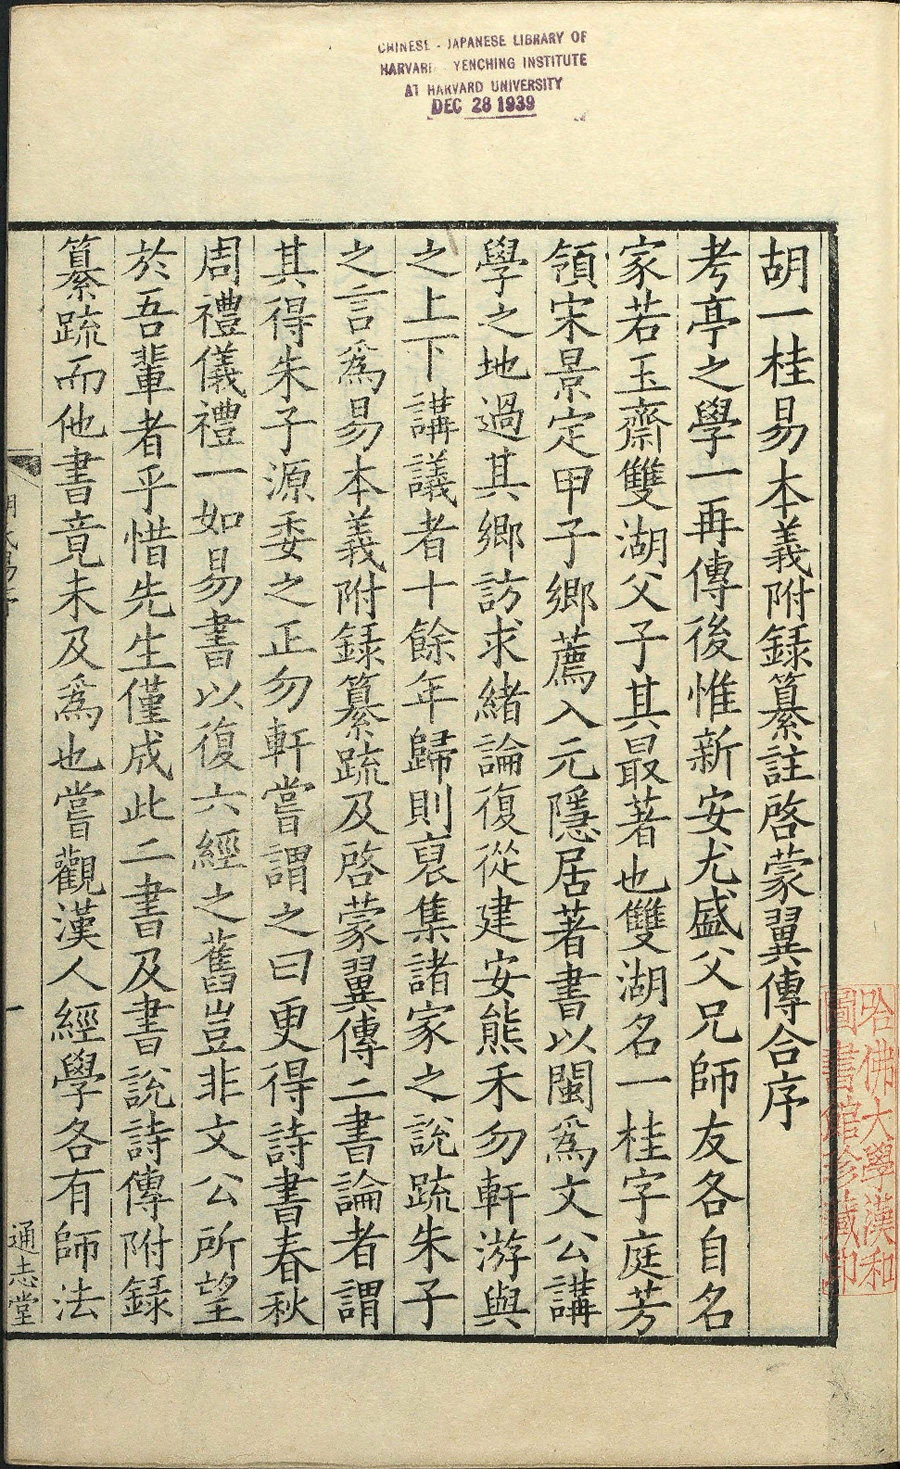 CHINESE - JAPANESE LIBRARY OF
HARVARD YENCHING INSTITUTE
AT HARVARD UNIVERSITY
DEC 28 1939
胡一桂易本義附録纂註啓蒙翼傳合序
考亭之學一再傳後惟新安尤盛父兄師友各自名
家若玉齋雙湖父子其最著也雙湖名一桂字庭芳
領宋景定甲子鄉薦入元隱居著書以閩爲文公講
學之地過其鄉訪求緒論復從建安熊禾勿軒游與
之上下講議者十餘年歸則裒集諸家之說疏朱子
之言爲易本義附録纂疏及啓蒙翼傳二書論者謂
其得朱子源委之正勿軒嘗謂之曰更得詩書春秋
周禮儀禮一如易書以復六經之舊豈非文公所望
於吾輩者乎惜先生僅成此二書及書說詩傳附録
纂疏而他書竟未及爲也嘗觀漢人經學各有師法
一
通志堂
哈佛大學漢和
圖書館珍藏印